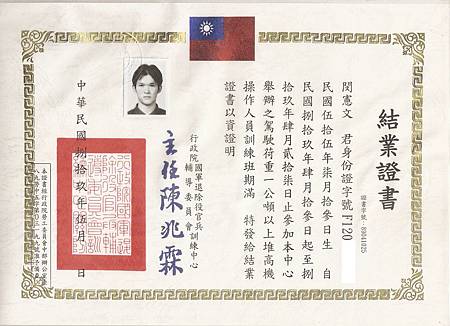 結業證書
證書字號：89041025
閔憲文 君身份證字號F120
民國伍拾伍年柒月拾參日生 自
民國捌拾玖年肆月拾參日起至捌
拾玖年肆月貳拾柒日止參加本中心
舉辦之駕駛荷重一公噸以上堆高機
操作人員訓練班期滿 特發給結業
證書以資證明
行政院國軍退除役官兵輔導委員會訓練中心
主任陳兆霖
中華民國捌拾玖年伍月 日
本證書經行政院勞工委員會中部辦公室